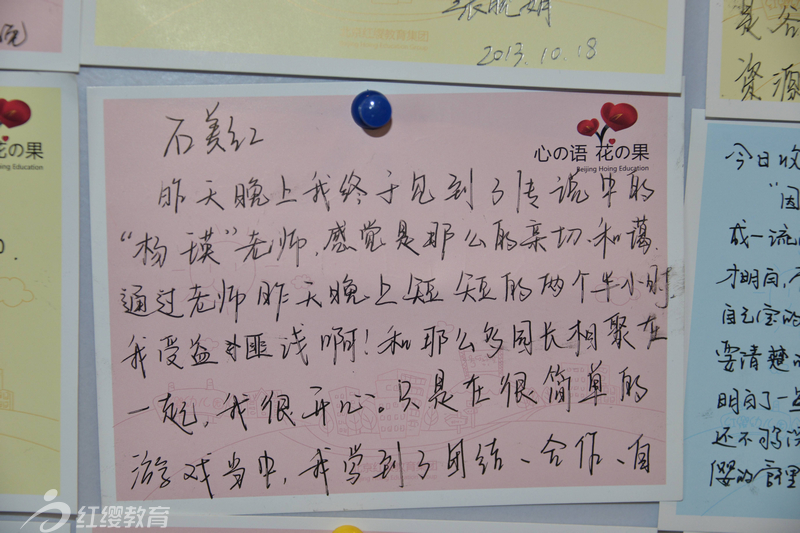 2013.10.18
是谷
资源
院
花の果
Hoing Education
石美红
心の语 花の果
Beijing Hoing Education
昨天晚上我终于见到了传说中的
“杨瑛”老师,感觉是那么的亲切、和蔼.
通过老师昨天晚上短短的两个半小时,
我受益匪浅啊!和那么多园长相聚在
一起,我很开心。只是在很简单的
游戏当中,我学到了团结、合作、自
今日收
“因
成一流
才明白,不
要清楚
明白了一些
还不够深
的管理
红缨教育